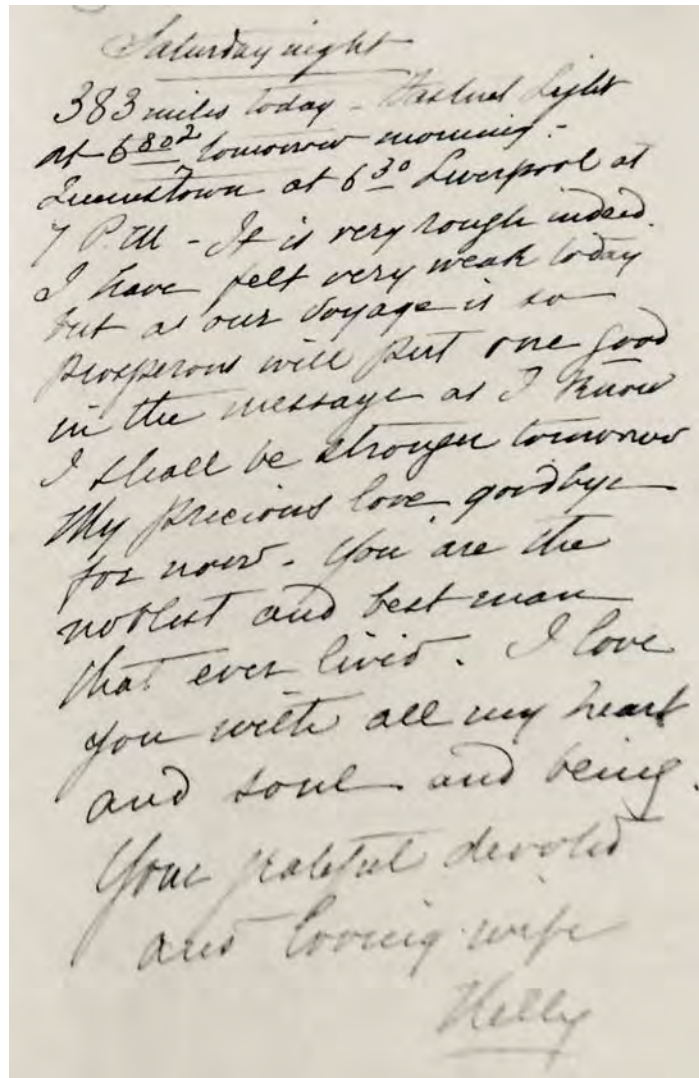 Saturday night
383 miles today - Fastnet Light
at 6 tomorrow morning -
Queenstown at 6 30 Liverpool at
7 P.M - It is very rough indeed.
I have felt very weak today
but as our voyage is so
prosperous will put one good
in the message as I know
I shall be stronger tomorrow
My precious love goodbye
for now - You are the
noblest and best man
that ever lived. I love
you with all my heart
and soul and being.
Your grateful devoted
and loving wife
Nelly